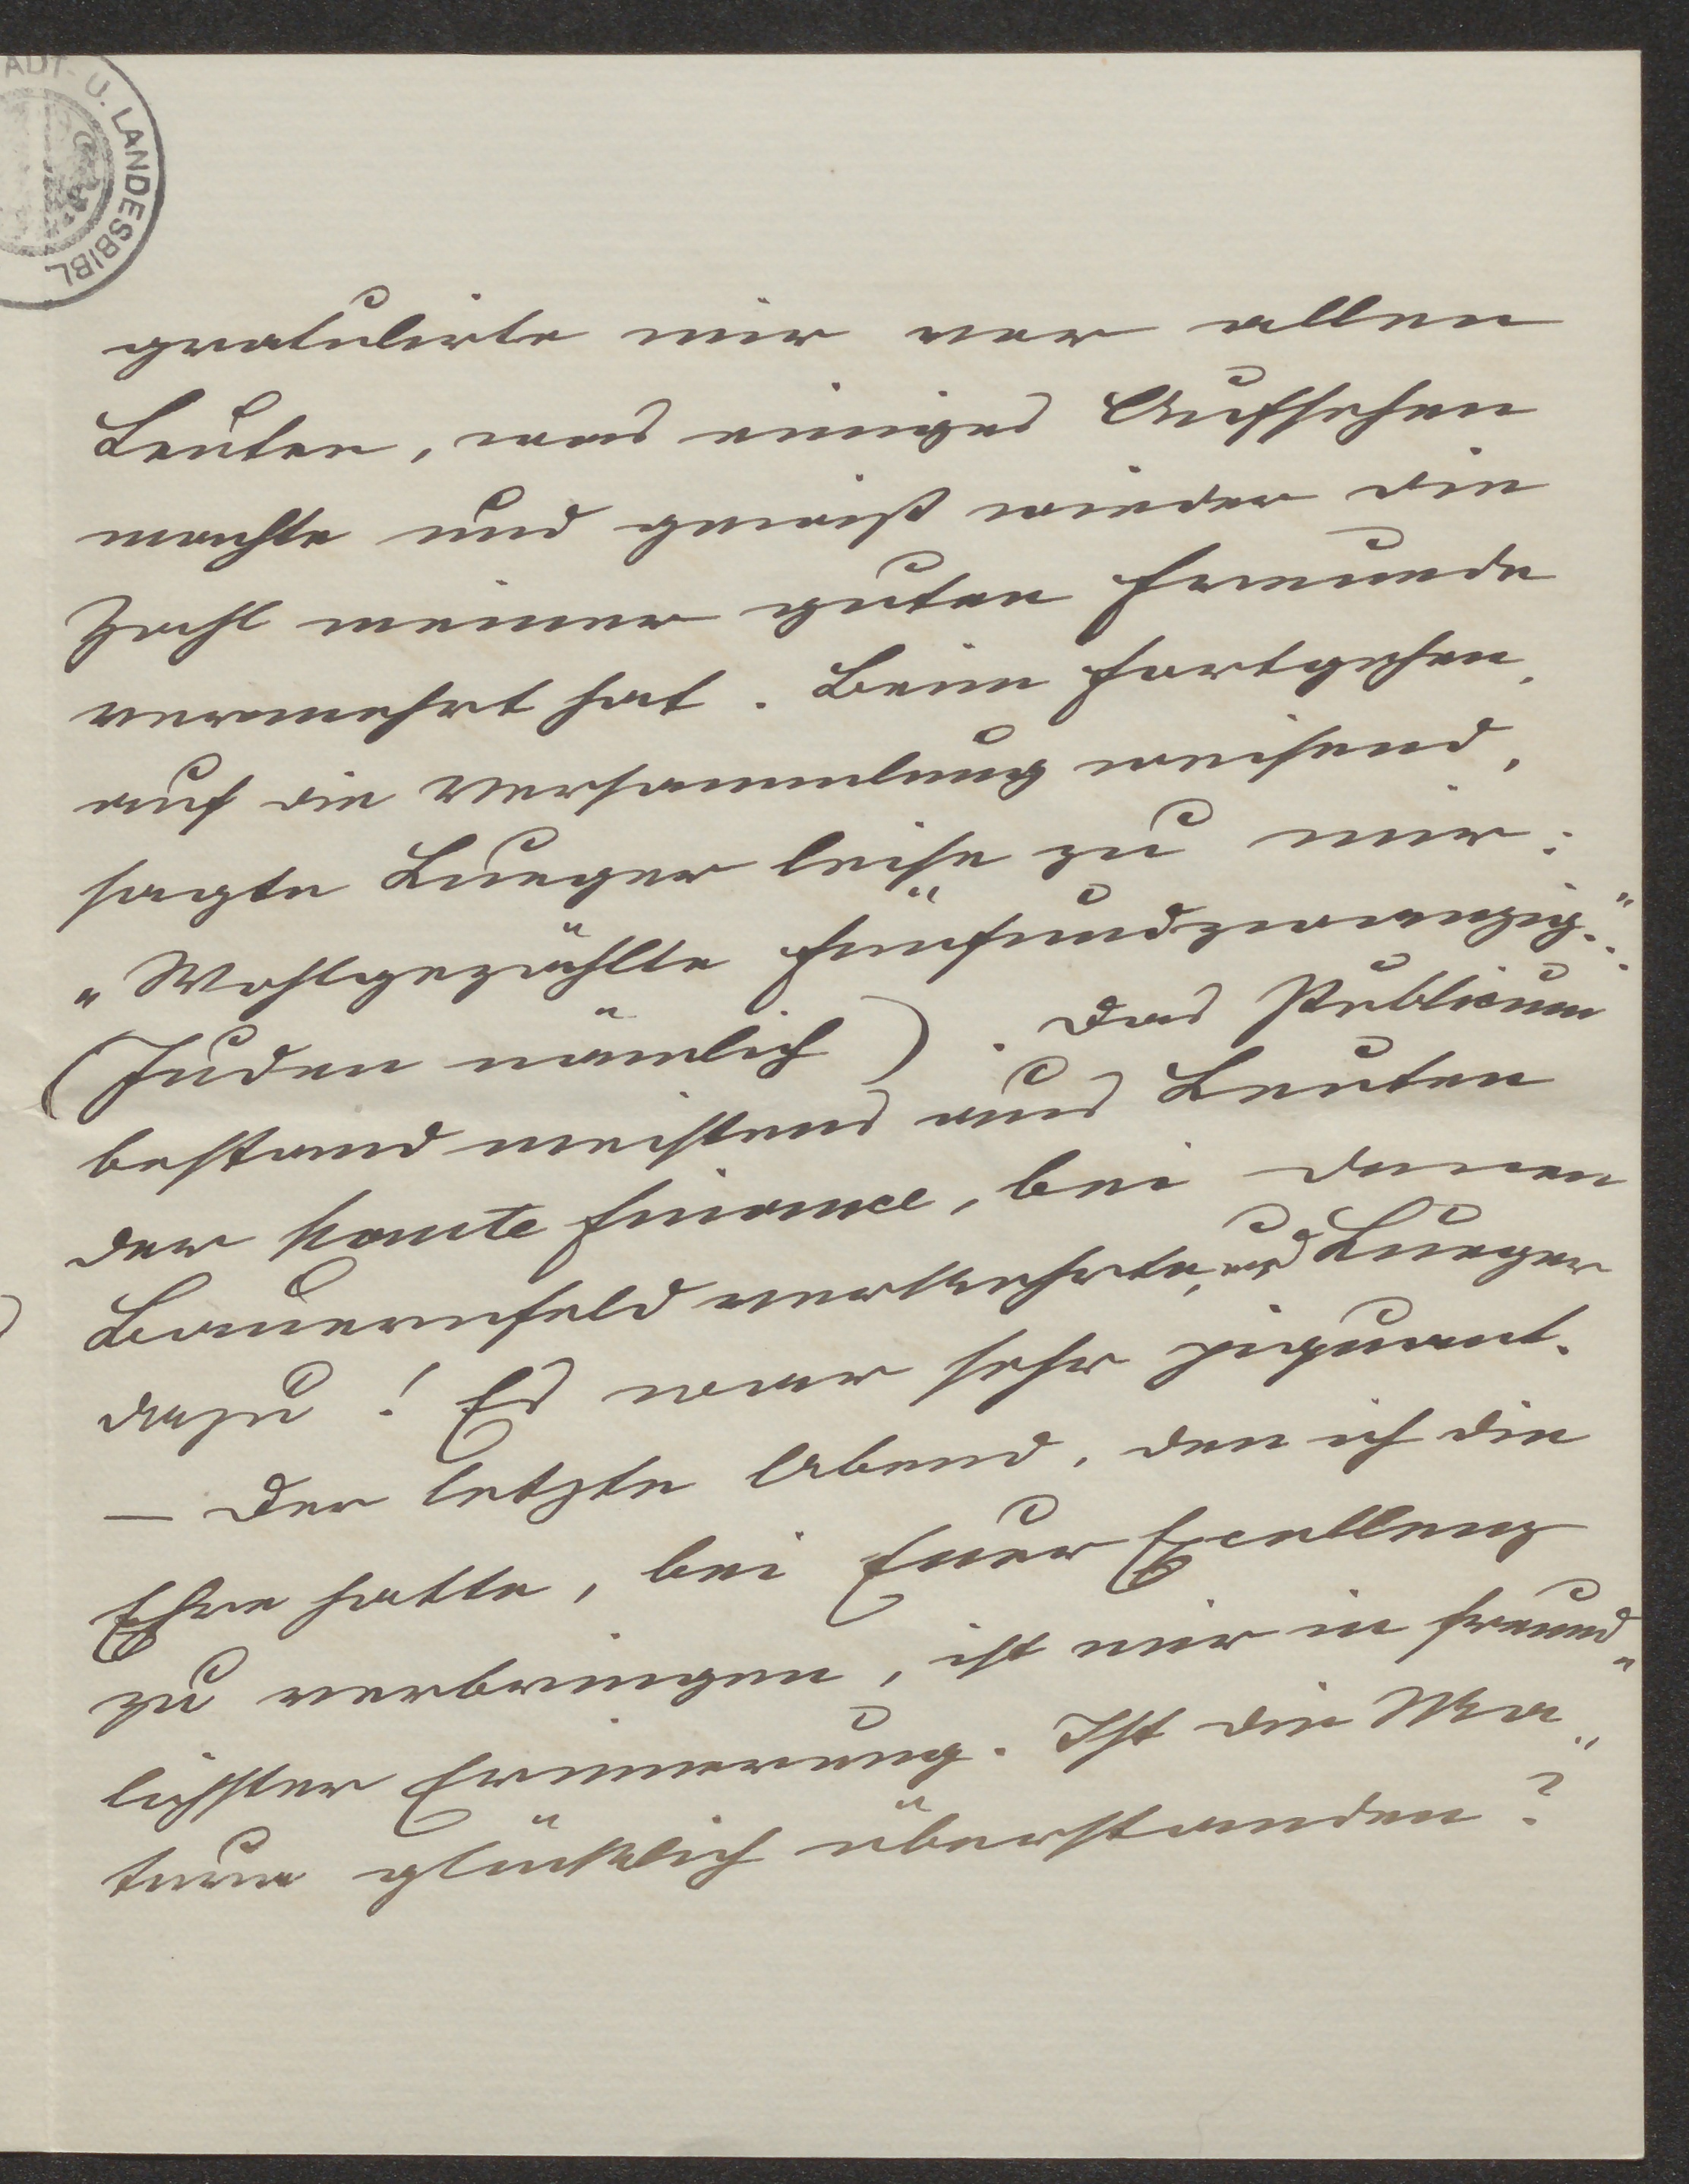 ADT- U. LANDESBIBL
gratulirte mir vor allen
Leuten, was einiges Aufsehen
machte und gewiß wieder die
Zahl meiner guten Freunde
vermehrt hat. Beim Fortgehen,
auf die Versammlung weisend,
sagte Lueger leise zu mir:
„Wohlgezählte fünfundzwanzig..."
(Juden nämlich). Das Publicum
bestand meistens aus Leuten
der haute finance, bei denen
Bauernfeld verkehrte, und Lueger
dazu! Es war sehr piquant.
— Der letzte Abend, den ich die
Ehre hatte, bei Euer Excellenz
zu verbringen, ist mir in freund„
lichster Erinnerung. Ist die Ma„
tura glücklich überstanden?